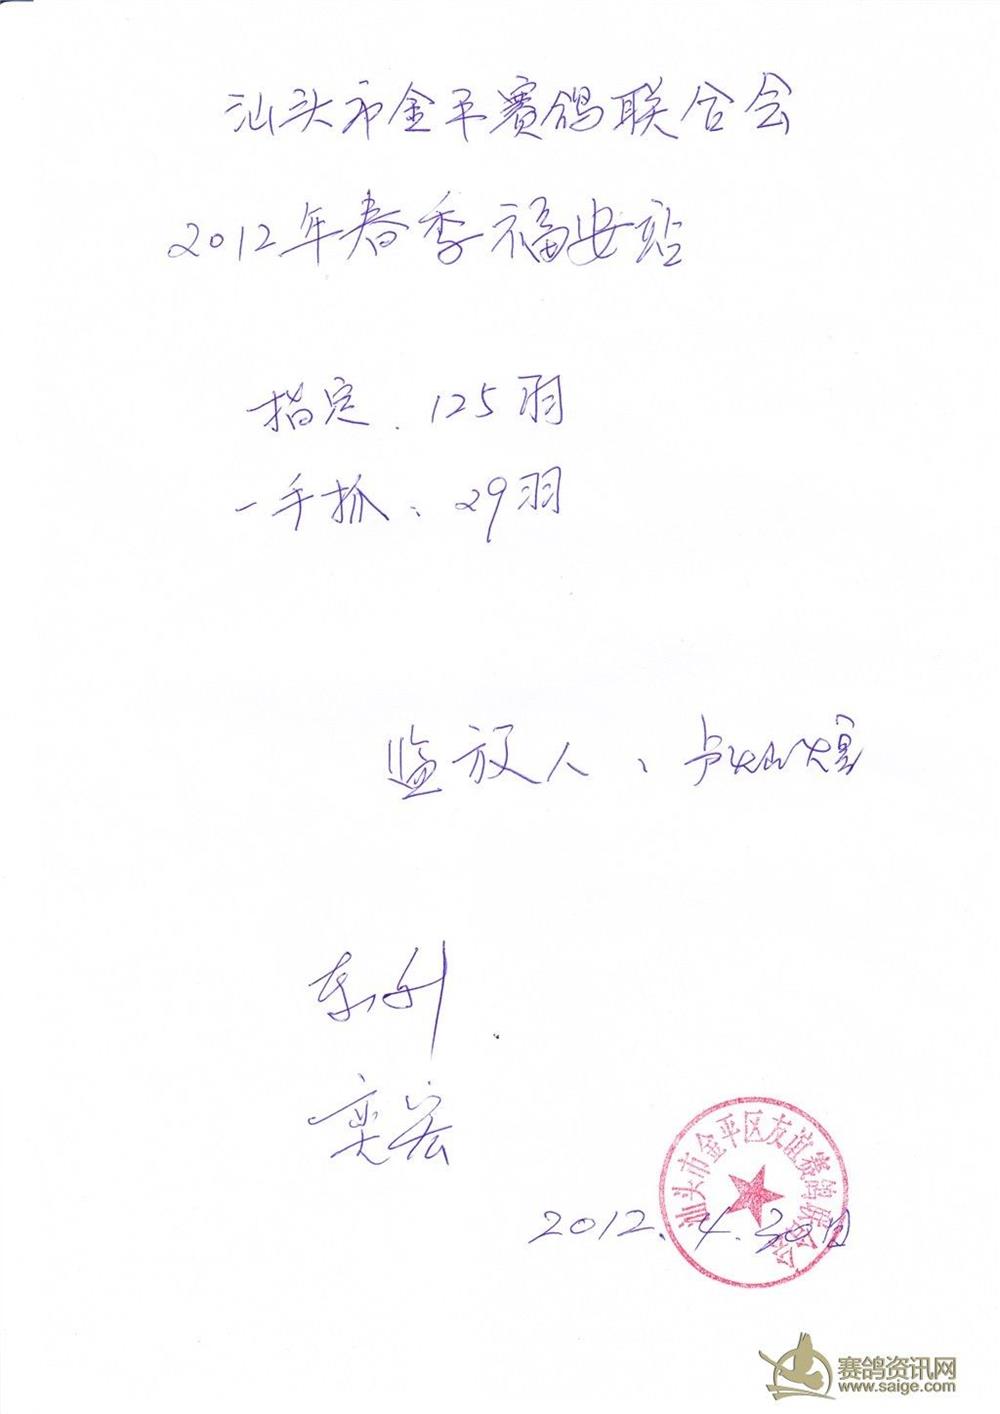 汕头市金平赛鸽联合会
2012年春季福安站
指定、125羽
一手抓、29羽
监放人、卢灿煌
东升
奕宏
汕头市金平区友谊赛鸽联合会
2012.4.30日
赛鸽资讯网
www.saige.com